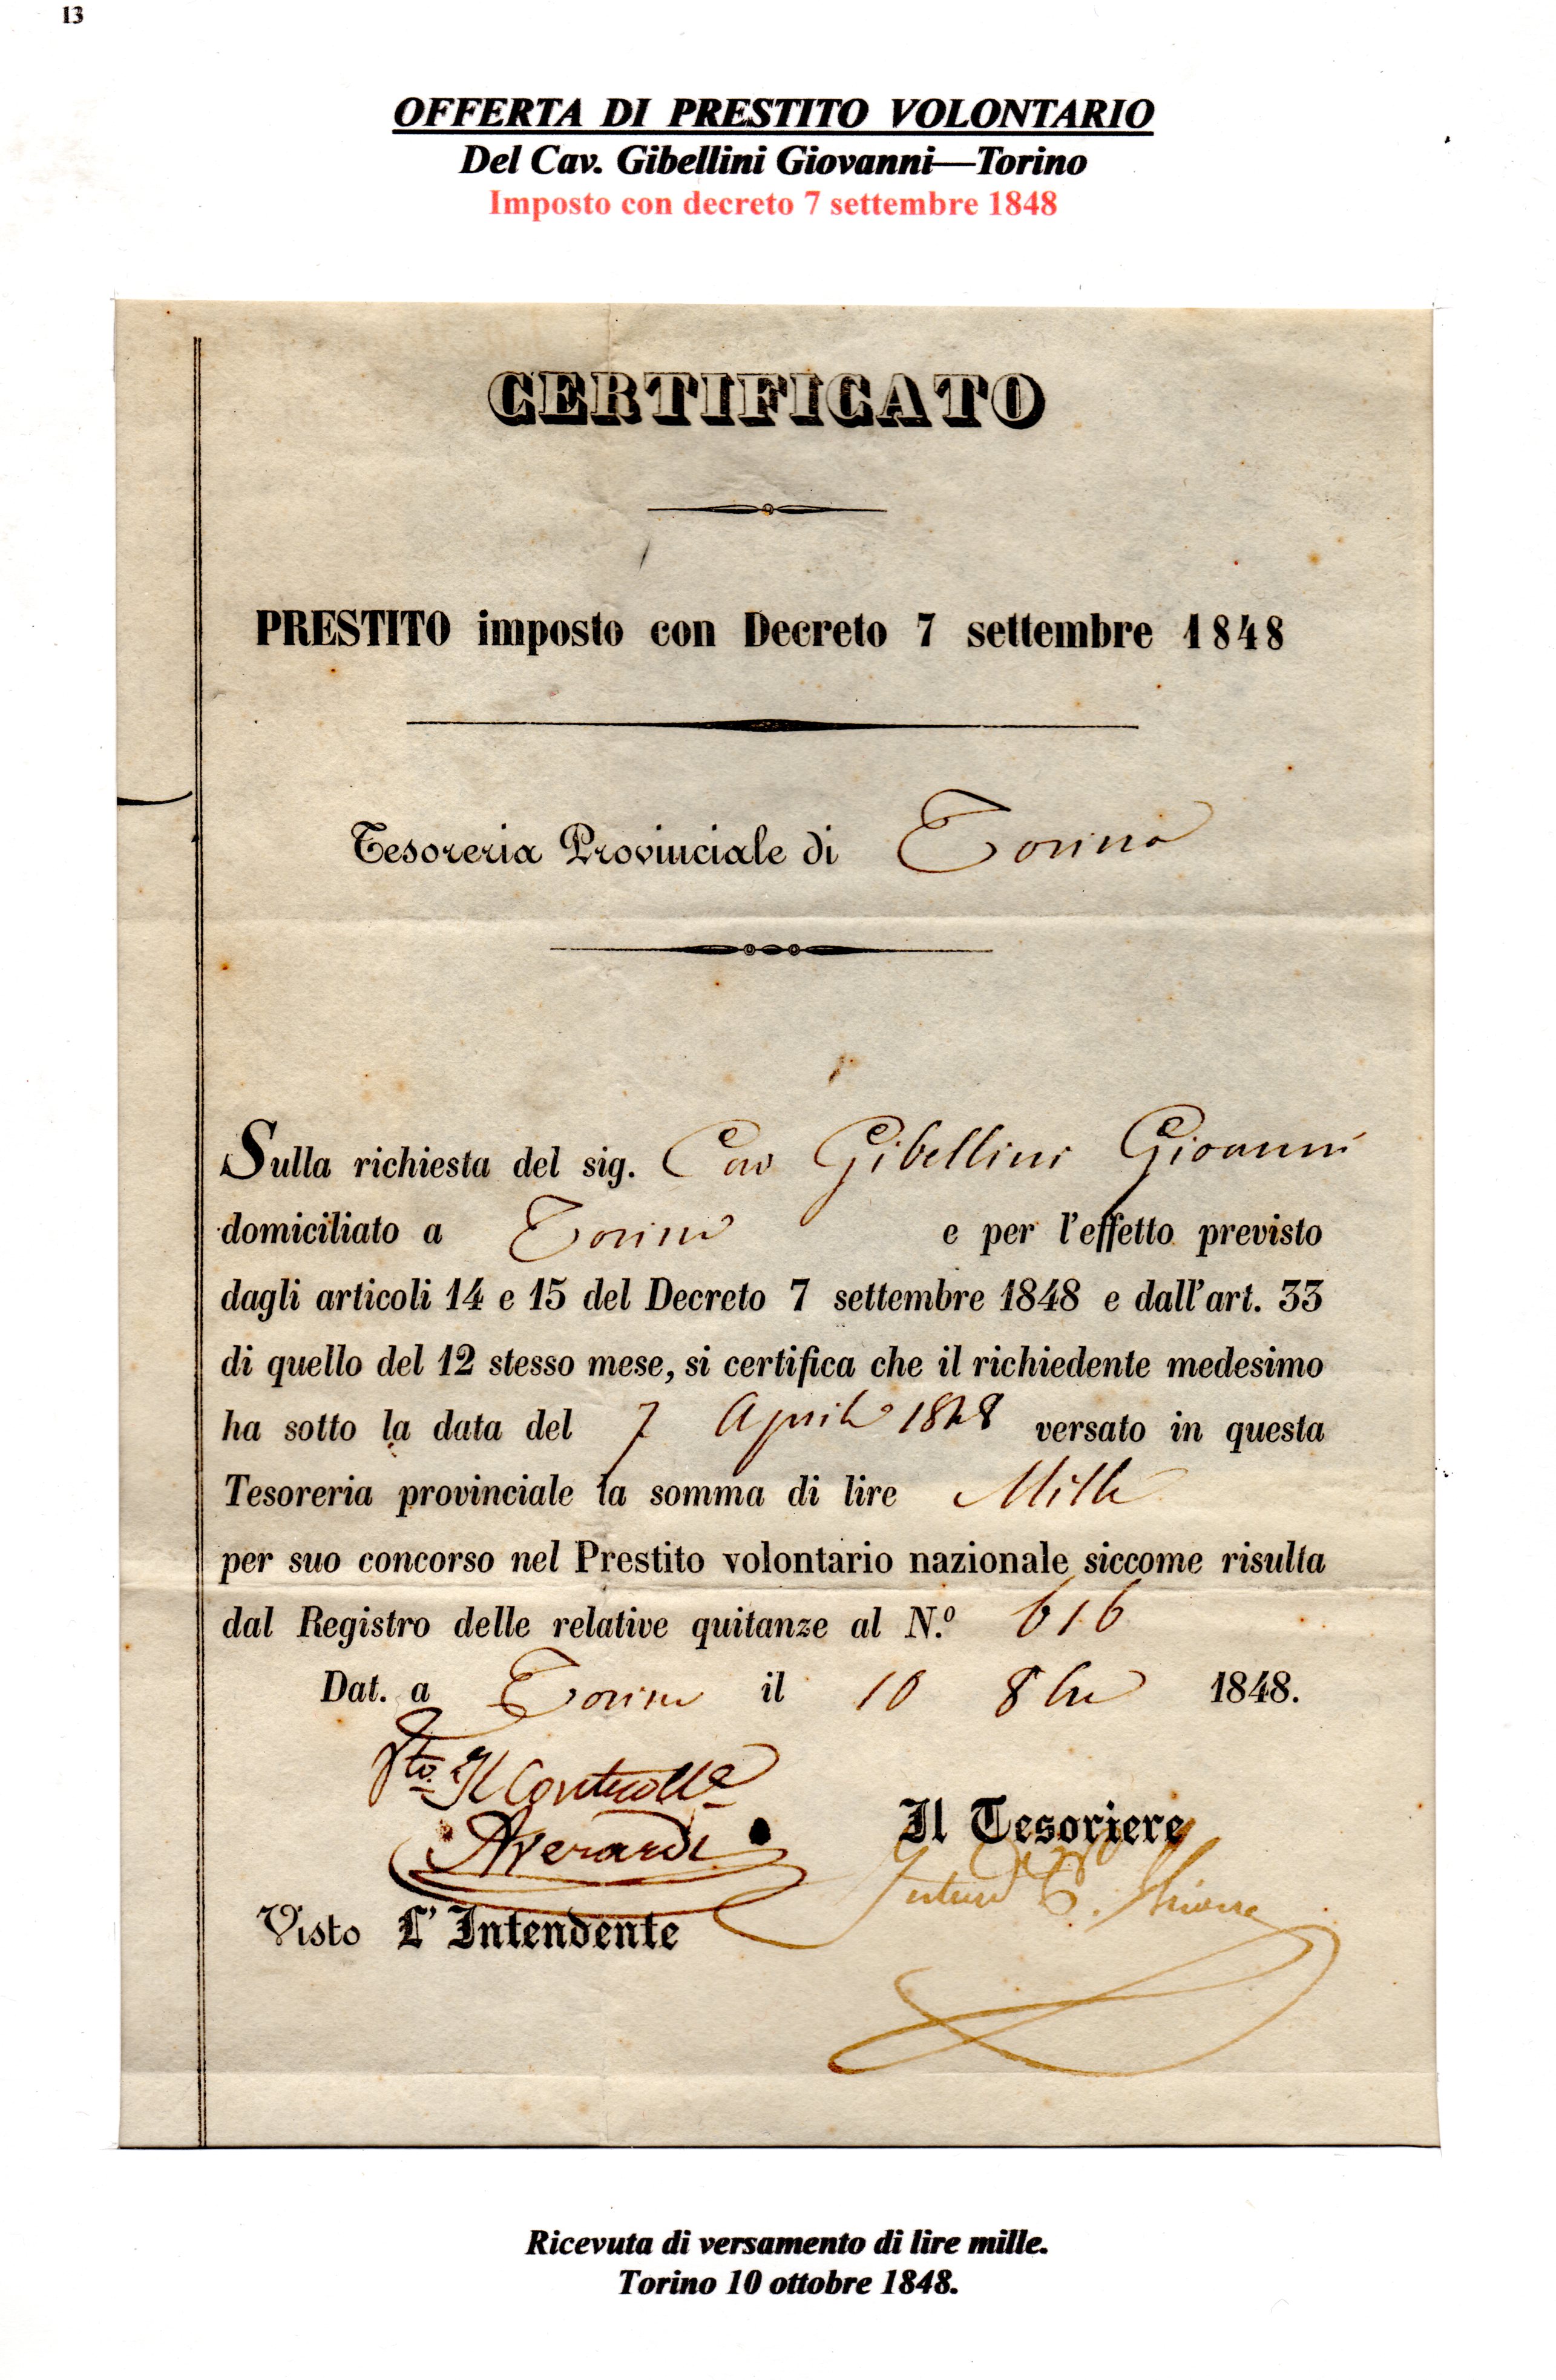 13
OFFERTA DI PRESTITO VOLONTARIO
Del Cav. Gibellini Giovanni—Torino
Imposto con decreto 7 settembre 1848
CERTIFICATO
PRESTITO imposto con Decreto 7 settembre 1848
Tesoreria Provinciale di Torino
Sulla richiesta del sig. Cav Gibellini Giovanni
domiciliato a Torino e per l'effetto previsto
dagli articoli 14 e 15 del Decreto 7 settembre 1848 e dall'art. 33
di quello del 12 stesso mese, si certifica che il richiedente medesimo
ha sotto la data del 7 Aprile 1848 versato in questa
Tesoreria provinciale la somma di lire Mille
per suo concorso nel Prestito volontario nazionale siccome risulta
dal Registro delle relative quitanze al N.º 616
Dat. a Torino il 10 8bre 1848.
Il Controlle
Averardi
Il Tesoriere
Visto L'Intendente
Ricevuta di versamento di lire mille.
Torino 10 ottobre 1848.